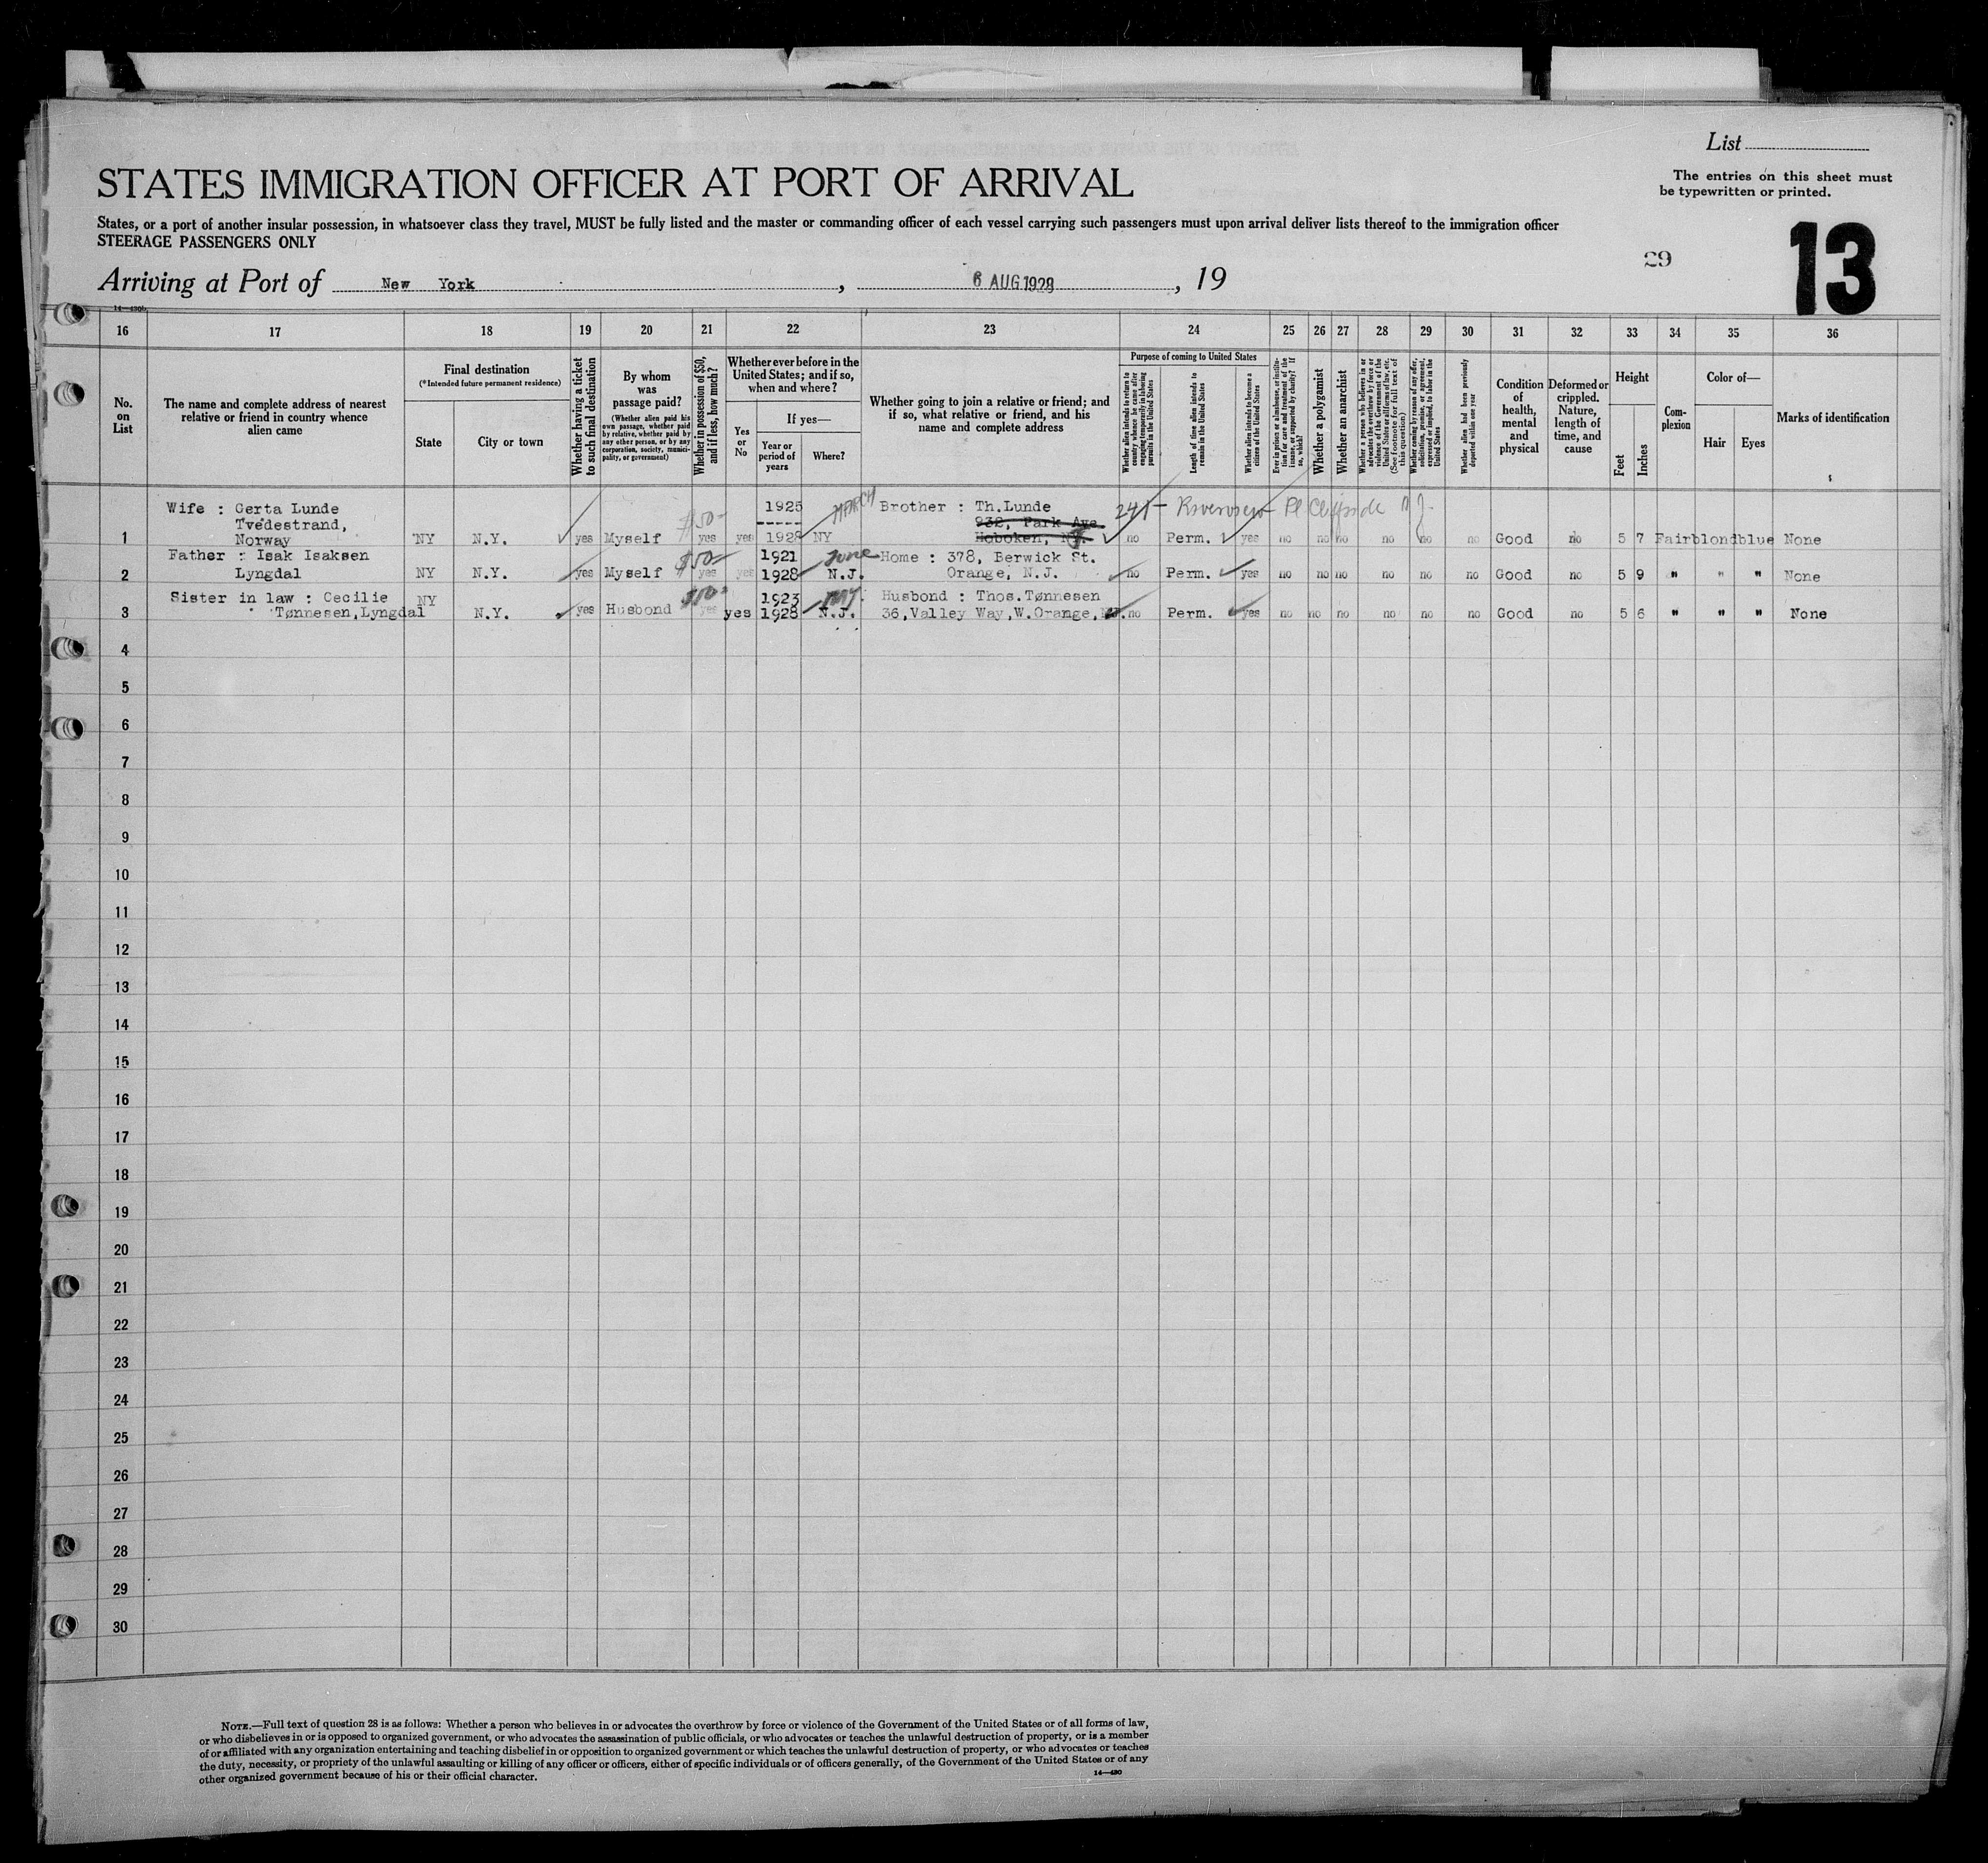 List
STATES IMMIGRATION OFFICER AT PORT OF ARRIVAL
The entries on this sheet must
be typewritten or printed.
States, or a port of another insular possession, in whatsoever class they travel, MUST be fully listed and the master or commanding officer of each vessel carrying such passengers must upon arrival deliver lists thereof to the immigration officer
STEERAGE PASSENGERS ONLY
29
13
Arriving at Port of New York, 6 AUG 1928, 19
14—430b
16 17 18 19 20 21 22 23 24 25 26 27 28 29 30 31 32 33 34 35 36
No.
on
List
The name and complete address of nearest
relative or friend in country whence
alien came
Final destination
(*Intended future permanent residence)
State
City or town
Whether having a ticket
to such final destination
By whom
was
passage paid?
(Whether alien paid his
own passage, whether paid
by relative, whether paid by
any other person, or by any
corporation, society, munici-
pality, or government)
Whether in possession of $50,
and if less, how much?
Whether ever before in the
United States; and if so,
when and where?
Yes
or
No
If yes—
Year or
period of
years
Where?
Whether going to join a relative or friend; and
if so, what relative or friend, and his
name and complete address
Purpose of coming to United States
Whether alien intends to return to
country whence he came after
engaging temporarily in laboring
pursuits in the United States
Length of time alien intends to
remain in the United States
Whether alien intends to become a
citizen of the United States
Ever in prison or almshouse, or institu-
tion for care and treatment of the
insane, or supported by charity? If
so, which?
Whether a polygamist
Whether an anarchist
Whether a person who believes in or
advocates the overthrow by force or
violence of the Government of the
United States or all forms of law, etc.
(See footnote for full text of
this question)
Whether coming by reason of any offer,
solicitation, promise, or agreement,
expressed or implied, to labor in the
United States
Whether alien had been previously
deported within one year
Condition
of
health,
mental
and
physical
Deformed or
crippled.
Nature,
length of
time, and
cause
Height
Feet
Inches
Com-
plexion
Color of—
Hair
Eyes
Marks of identification
Wife : Gerta Lunde 1925 MARCH Brother : Th.Lunde 245 - Riverview Pl Clifside N J.
Tvedestrand, $50- ----- 932, Park Ave
1 Norway NY N.Y. yes Myself yes yes 1928 NY Hoboken, NJ. no Perm. yes no no no no no no Good no 5 7 Fair blond blue None
Father : Isak Isaksen $50- 1921 June Home : 378, Berwick St.
2 Lyngdal NY N.Y. yes Myself yes yes 1928 N.J. Orange, N.J. no Perm. yes no no no no no no Good no 5 9 " " " None
Sister in law : Cecilie NY $50- 1923 Husbond : Thos.Tønnesen
3 Tønnesen,Lyngdal N.Y. yes Husbond yes yes 1928 N.J. 36,Valley Way,W.Orange, NJ. no Perm. yes no no no no no no Good no 5 6 " " " None
4
5
6
7
8
9
10
11
12
13
14
15
16
17
18
19
20
21
22
23
24
25
26
27
28
29
30
NOTE.—Full text of question 28 is as follows: Whether a person who believes in or advocates the overthrow by force or violence of the Government of the United States or of all forms of law,
or who disbelieves in or is opposed to organized government, or who advocates the assassination of public officials, or who advocates or teaches the unlawful destruction of property, or is a member
of or affiliated with any organization entertaining and teaching disbelief in or opposition to organized government or which teaches the unlawful destruction of property, or who advocates or teaches
the duty, necessity, or propriety of the unlawful assaulting or killing of any officer or officers, either of specific individuals or of officers generally, of the Government of the United States or of any
other organized government because of his or their official character.
14—430